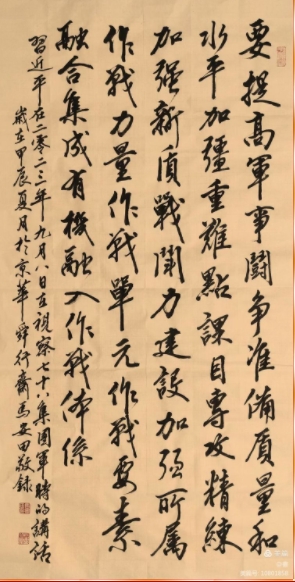 要提高軍事鬪争准備质量和
水平加疆重难點課目專攻精練
加强新质戰鬪力建設加强所属
作战力量作战單元作战要素
融合集成有機融入作战体係
習近平在二零二三年九月八日在視察七十八集团軍時的講話
歲在甲辰夏月於京華舜行齋馬安田敬録